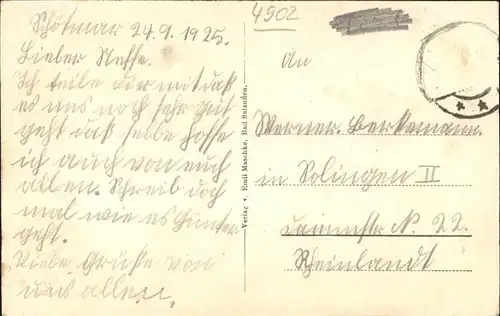 4902
Schötmar 24.9.1925.
Lieber Neffe.
Ich teile dir mit daß
es uns noch sehr gut
geht daß selbe hoffe
ich auch von euch
allen. Schreib doch
mal wie es Günter
geht.
Viele Grüße von
uns allen
Verlag v. Emil Maschke, Bad Salzuflen.
An
Werner Berkemann
in Solingen II
N. 22.
Rheinlandt